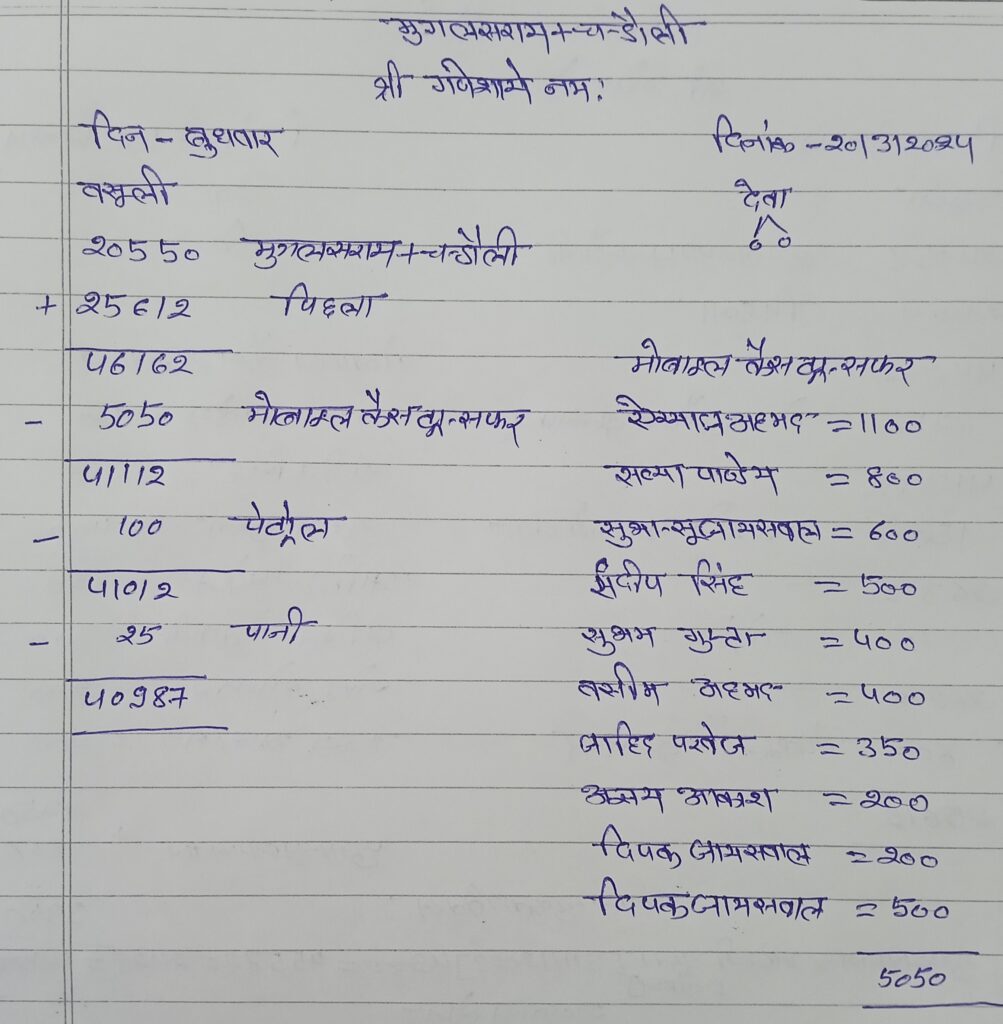 मुगलसराय+चन्डौली
श्री गणेशाये नमः
दिन - बुधवार
दिनांक - 20/3/2024
वसूली
देवा
20550 मुगलसराय+चन्डौली
+ 25612 पिछला
46162
- 5050 मोबाइल कैस ट्रान्सफर
41112
- 100 पेट्रोल
41012
- 25 पानी
40987
मोबाइल कैस ट्रान्सफर
अहमद = 1100
पाण्डेय = 800
जायसवाल = 600
संदीप सिंह = 500
सुभम गुप्ता = 400
वसीम अहमद = 400
जाहिद परवेज = 350
आकाश = 200
दिपक जायसवाल = 200
दिपक जायसवाल = 500
5050